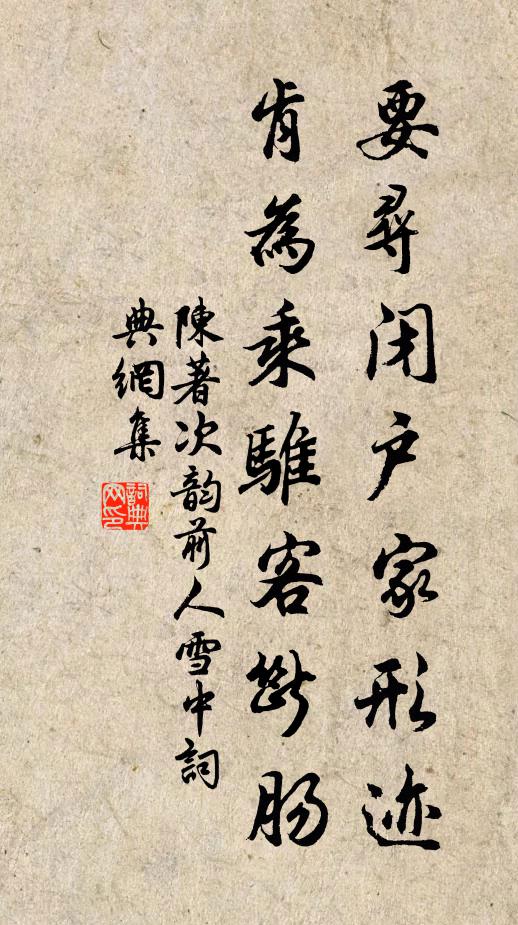 要尋闭户家形迹
肯為乘騅客断肠
陳著次韵前人雪中詞
典網集
詞典
网印